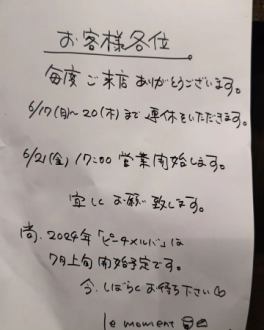 お客様各位。
毎度ご来店ありがとうございます。
6/17(月)〜20(木)まで連休をいただきます。
6/21(金) 17:00 営業開始します。
宜しくお願い致します。
尚、2024年「ピーチメルバ」は
7月上旬開始予定です。
今、しばらくお待ち下さい
le moment